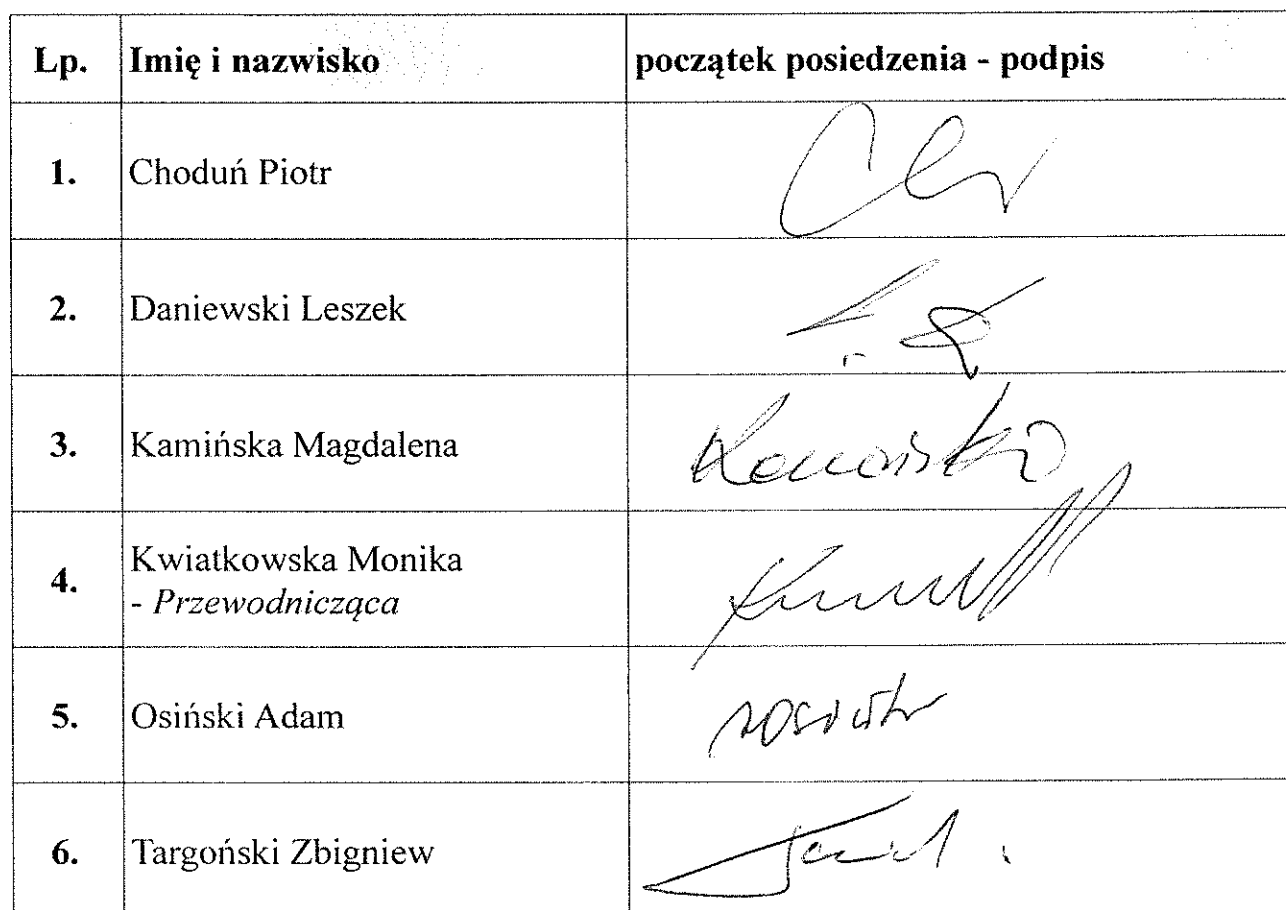 Lp. Imię i nazwisko początek posiedzenia - podpis
1. Choduń Piotr
2. Daniewski Leszek
3. Kamińska Magdalena
4. Kwiatkowska Monika
- Przewodnicząca
5. Osiński Adam
6. Targoński Zbigniew